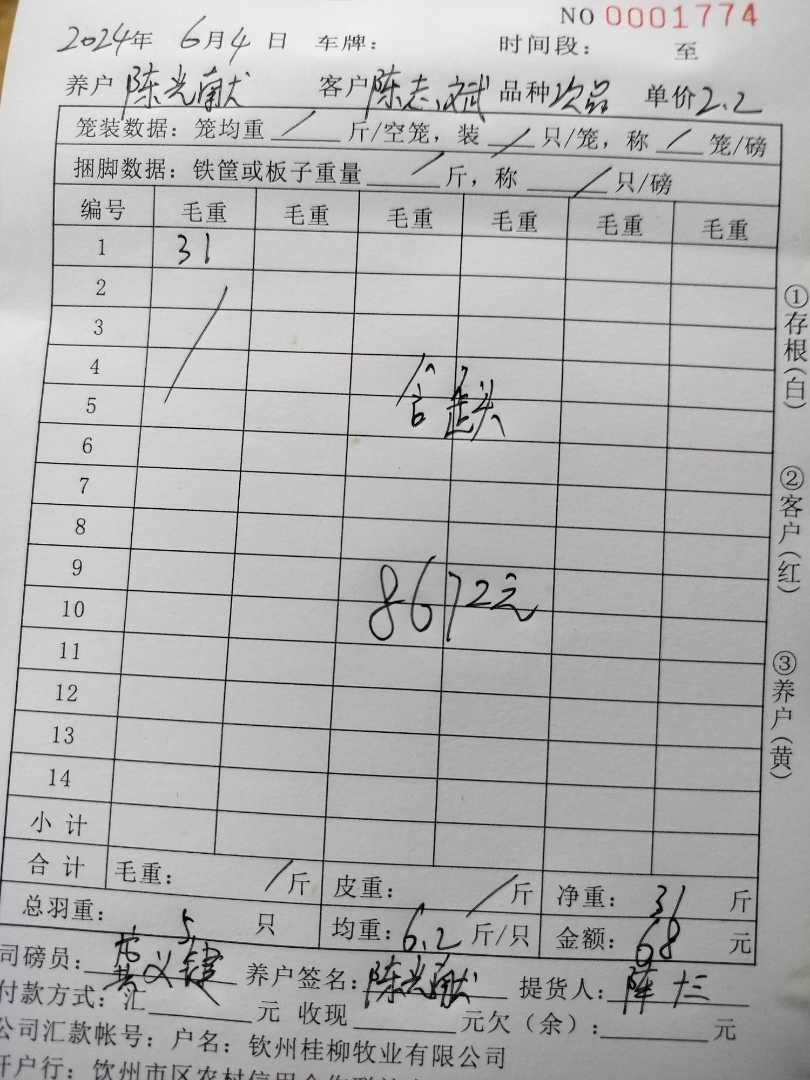 NO 0001774
2024年 6月4日 车牌： 时间段： 至
养户 陈光献 客户 陈志斌 品种 次品 单价 2.2
笼装数据：笼均重 / 斤/空笼，装 / 只/笼，称 / 笼/磅
捆脚数据：铁筐或板子重量 / 斤，称 / 只/磅
编号 毛重 毛重 毛重 毛重 毛重 毛重
1 31
2
3
4
5
6
7
8
9
8672元
10
11
12
13
14
小计
合计 毛重： / 斤 皮重： / 斤 净重： 31 斤
总羽重： 5 只 均重：6.2 斤/只 金额：68 元
司磅员： 养户签名：陈光献 提货人：陈十三
付款方式：汇 元 收现 元欠（余）： 元
公司汇款帐号：户名：钦州桂柳牧业有限公司
开户行：钦州市区农村信用合作联
①存根（白）
②客户（红）
③养户（黄）